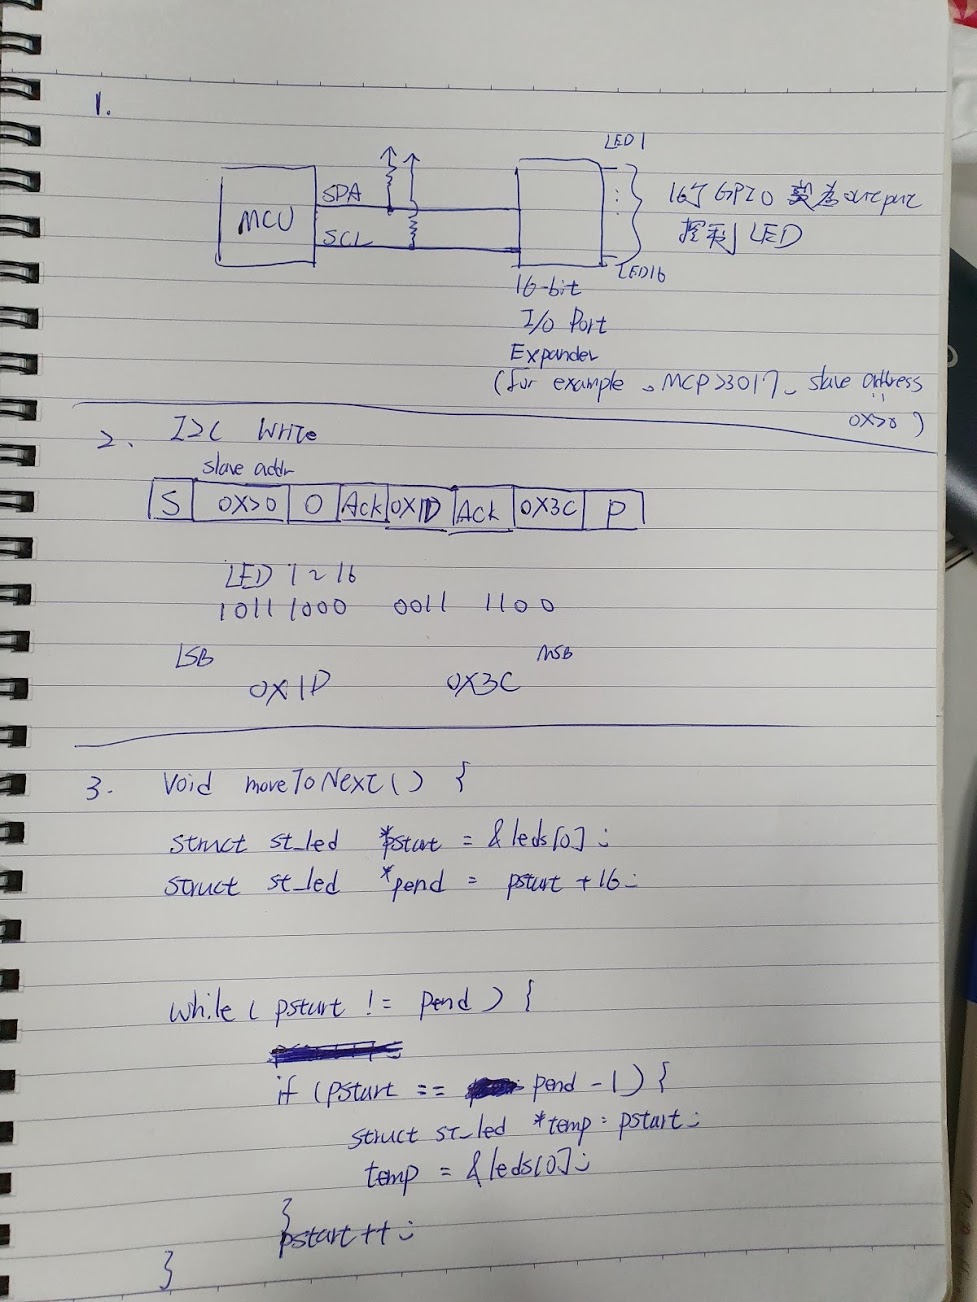 1.
LED1
SDA
MCU
SCL
16個 GPIO output
控制 LED
LED16
16-bit
I/O Port
Expander
(for example 、MCP23017、slave address
0x20 )
2. I2C Write
slave addr
S 0x20 0 Ack 0x1D Ack 0x3C P
LED 1 ~ 16
1011 1000 0011 1100
LSB MSB
0x1D 0x3C
3. Void moveToNext() {
struct st_led *pstart = &leds[0];
struct st_led *pend = pstart +16;
while ( pstart != pend ) {
if (pstart == pend -1) {
struct st_led *temp = pstart;
temp = &leds[0];
}
pstart++;
}